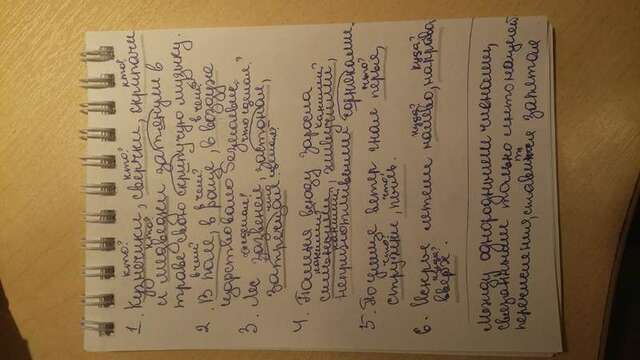 кто? кто? кто?
1. Кузнечики, сверчки, скрипачи
кто?
и медведки затянули в
траве свою скрипучую музыку.
в чём? в чём? в чём?
2. В поле, в роще, в воздухе
царствовало безмолвие.
что сделал? что сделал?
3. Лес зазвенел, застонал,
что сделал?
Затрещал
4. Поляна всюду заросла
какими? какими?
сильными, живучими,
какими?
неприхотливыми сорняками.
что?
5. По улице ветер гнал перья,
что? что?
стружки, пыль.
куда? куда?
6. Искры летели налево, направо
куда?
вверх.
Между однородными членами,
связанными только интонацией
перечисления, ставится запятая